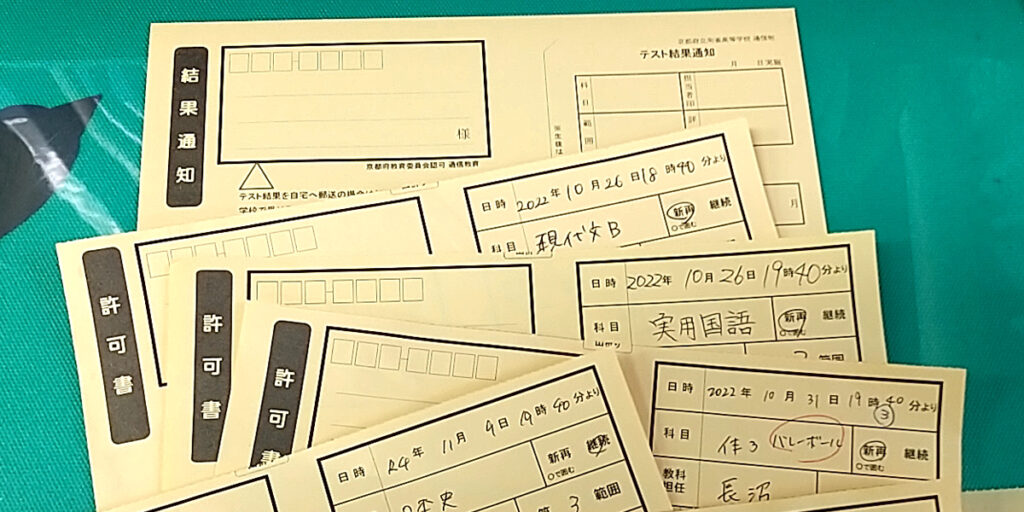 結果通知
様
京都府教育委員会認可 通信教育
テスト結果を自宅へ郵送の場合は
テスト結果通知
月 日実施
科目
担当者印
範囲
評
月
許可書
日時 2022年 10月 26日 18時40分より
科目 現代文B
新再 継続
○で囲む
許可書
日時 2022年 10月 26日 19時40分より
科目 実用国語
新再 継続
○で囲む
範囲
許可書
日時 2022年 10月 31日 19時40分より
③
科目 体3 バレーボール
新再 継続
○で囲む
教科担任 長沼
日時 R4年 11月 9日 19時40分より
新再 継続
○で囲む
第3範囲